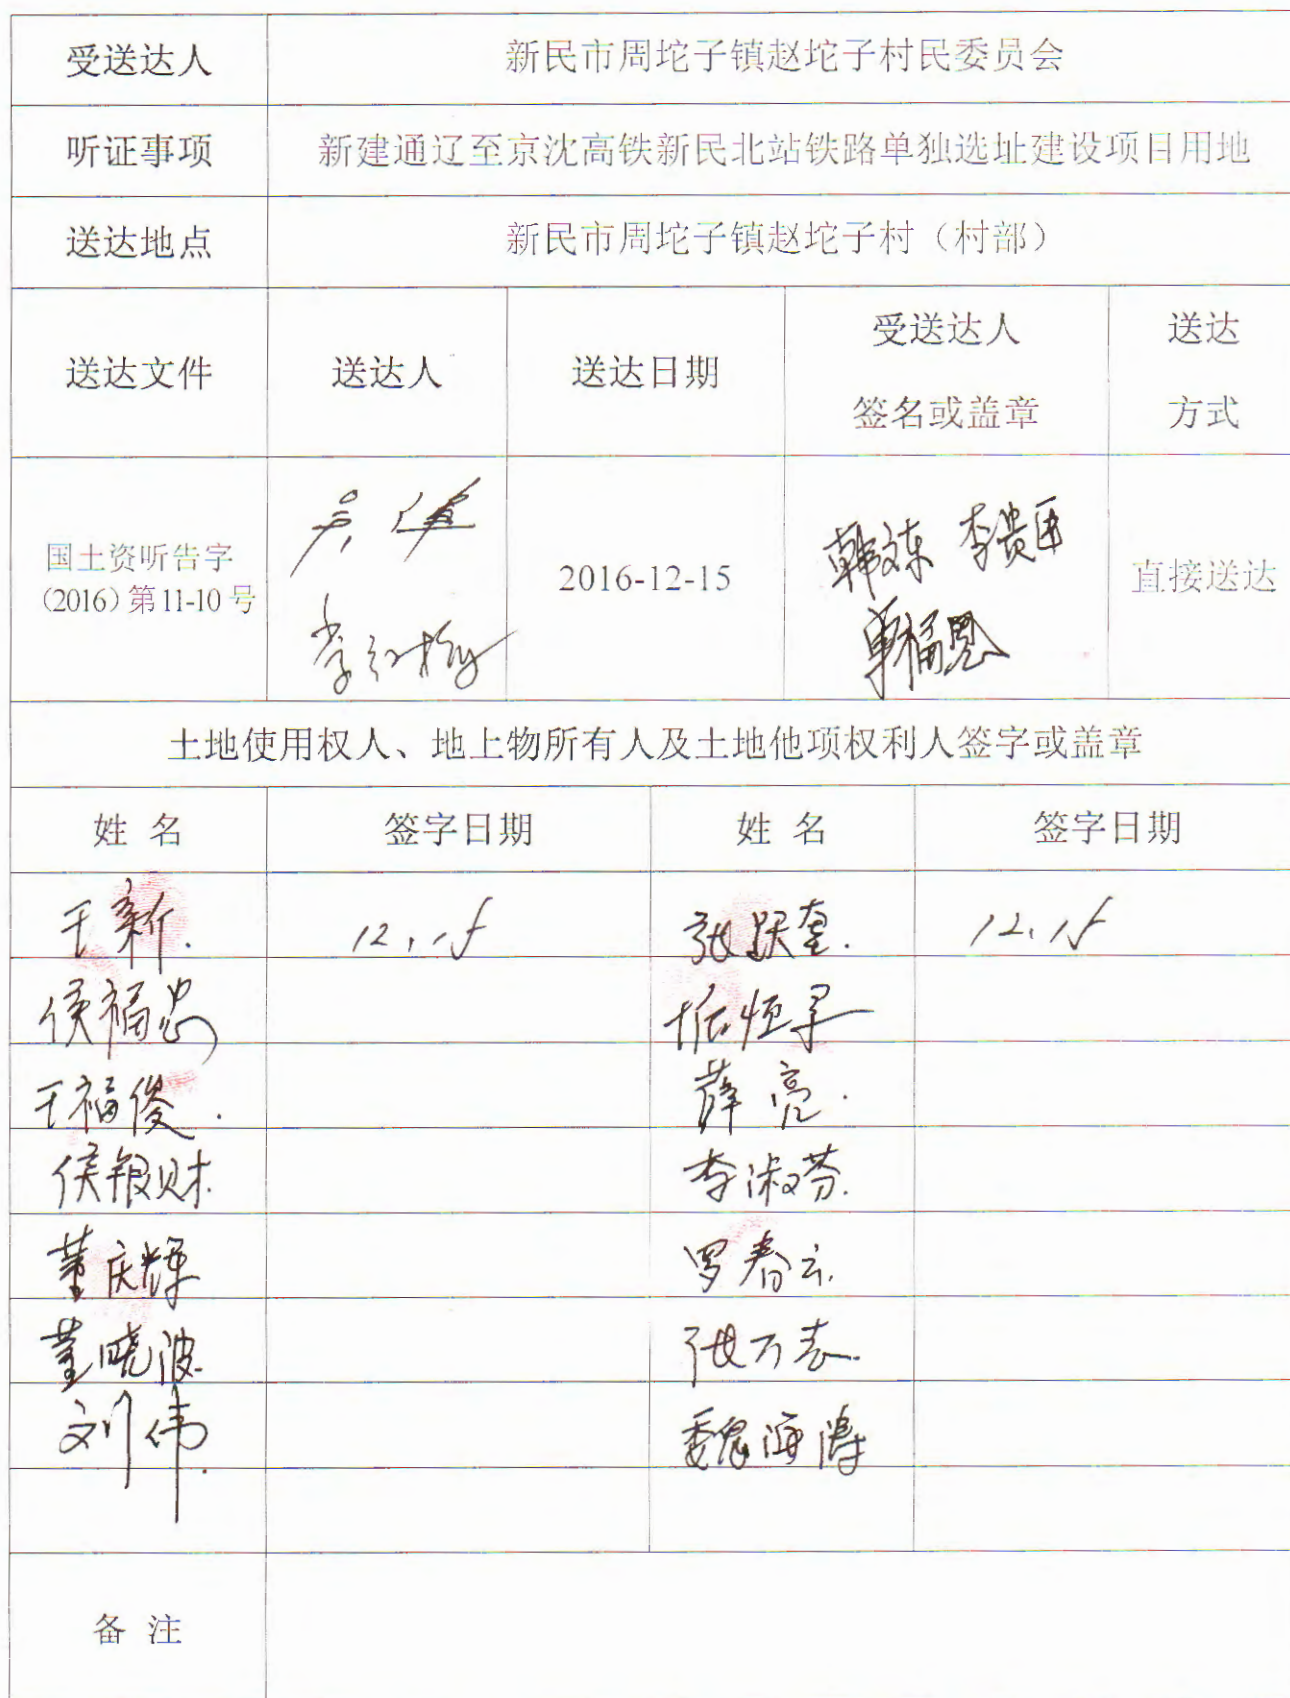 受送达人 新民市周坨子镇赵坨子村民委员会
听证事项 新建通辽至京沈高铁新民北站铁路单独选址建设项目用地
送达地点 新民市周坨子镇赵坨子村（村部）
送达文件 送达人 送达日期 受送达人 签名或盖章 送达 方式
国土资听告字
（2016）第11-10号
2016-12-15
直接送达
土地使用权人、地上物所有人及土地他项权利人签字或盖章
姓 名 签字日期 姓 名 签字日期
王新. 12.15 张跃奎. 12.15
侯福忠
王福俊. 薛亮.
侯银财. 李淑芬.
董庆辉 罗春云.
董晓波. 张万志.
刘伟. 魏海涛
备 注